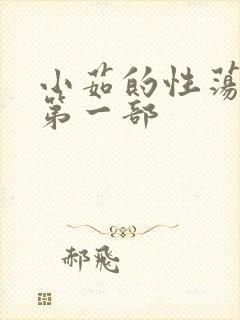 小茹的性荡
第一部
郝飛